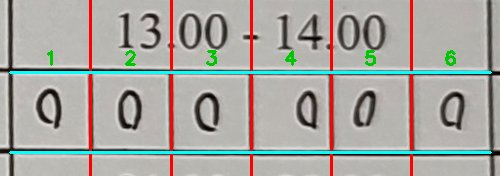 13.00 - 14.00
1 2 3 4 5 6
0 0 0 0 0 0